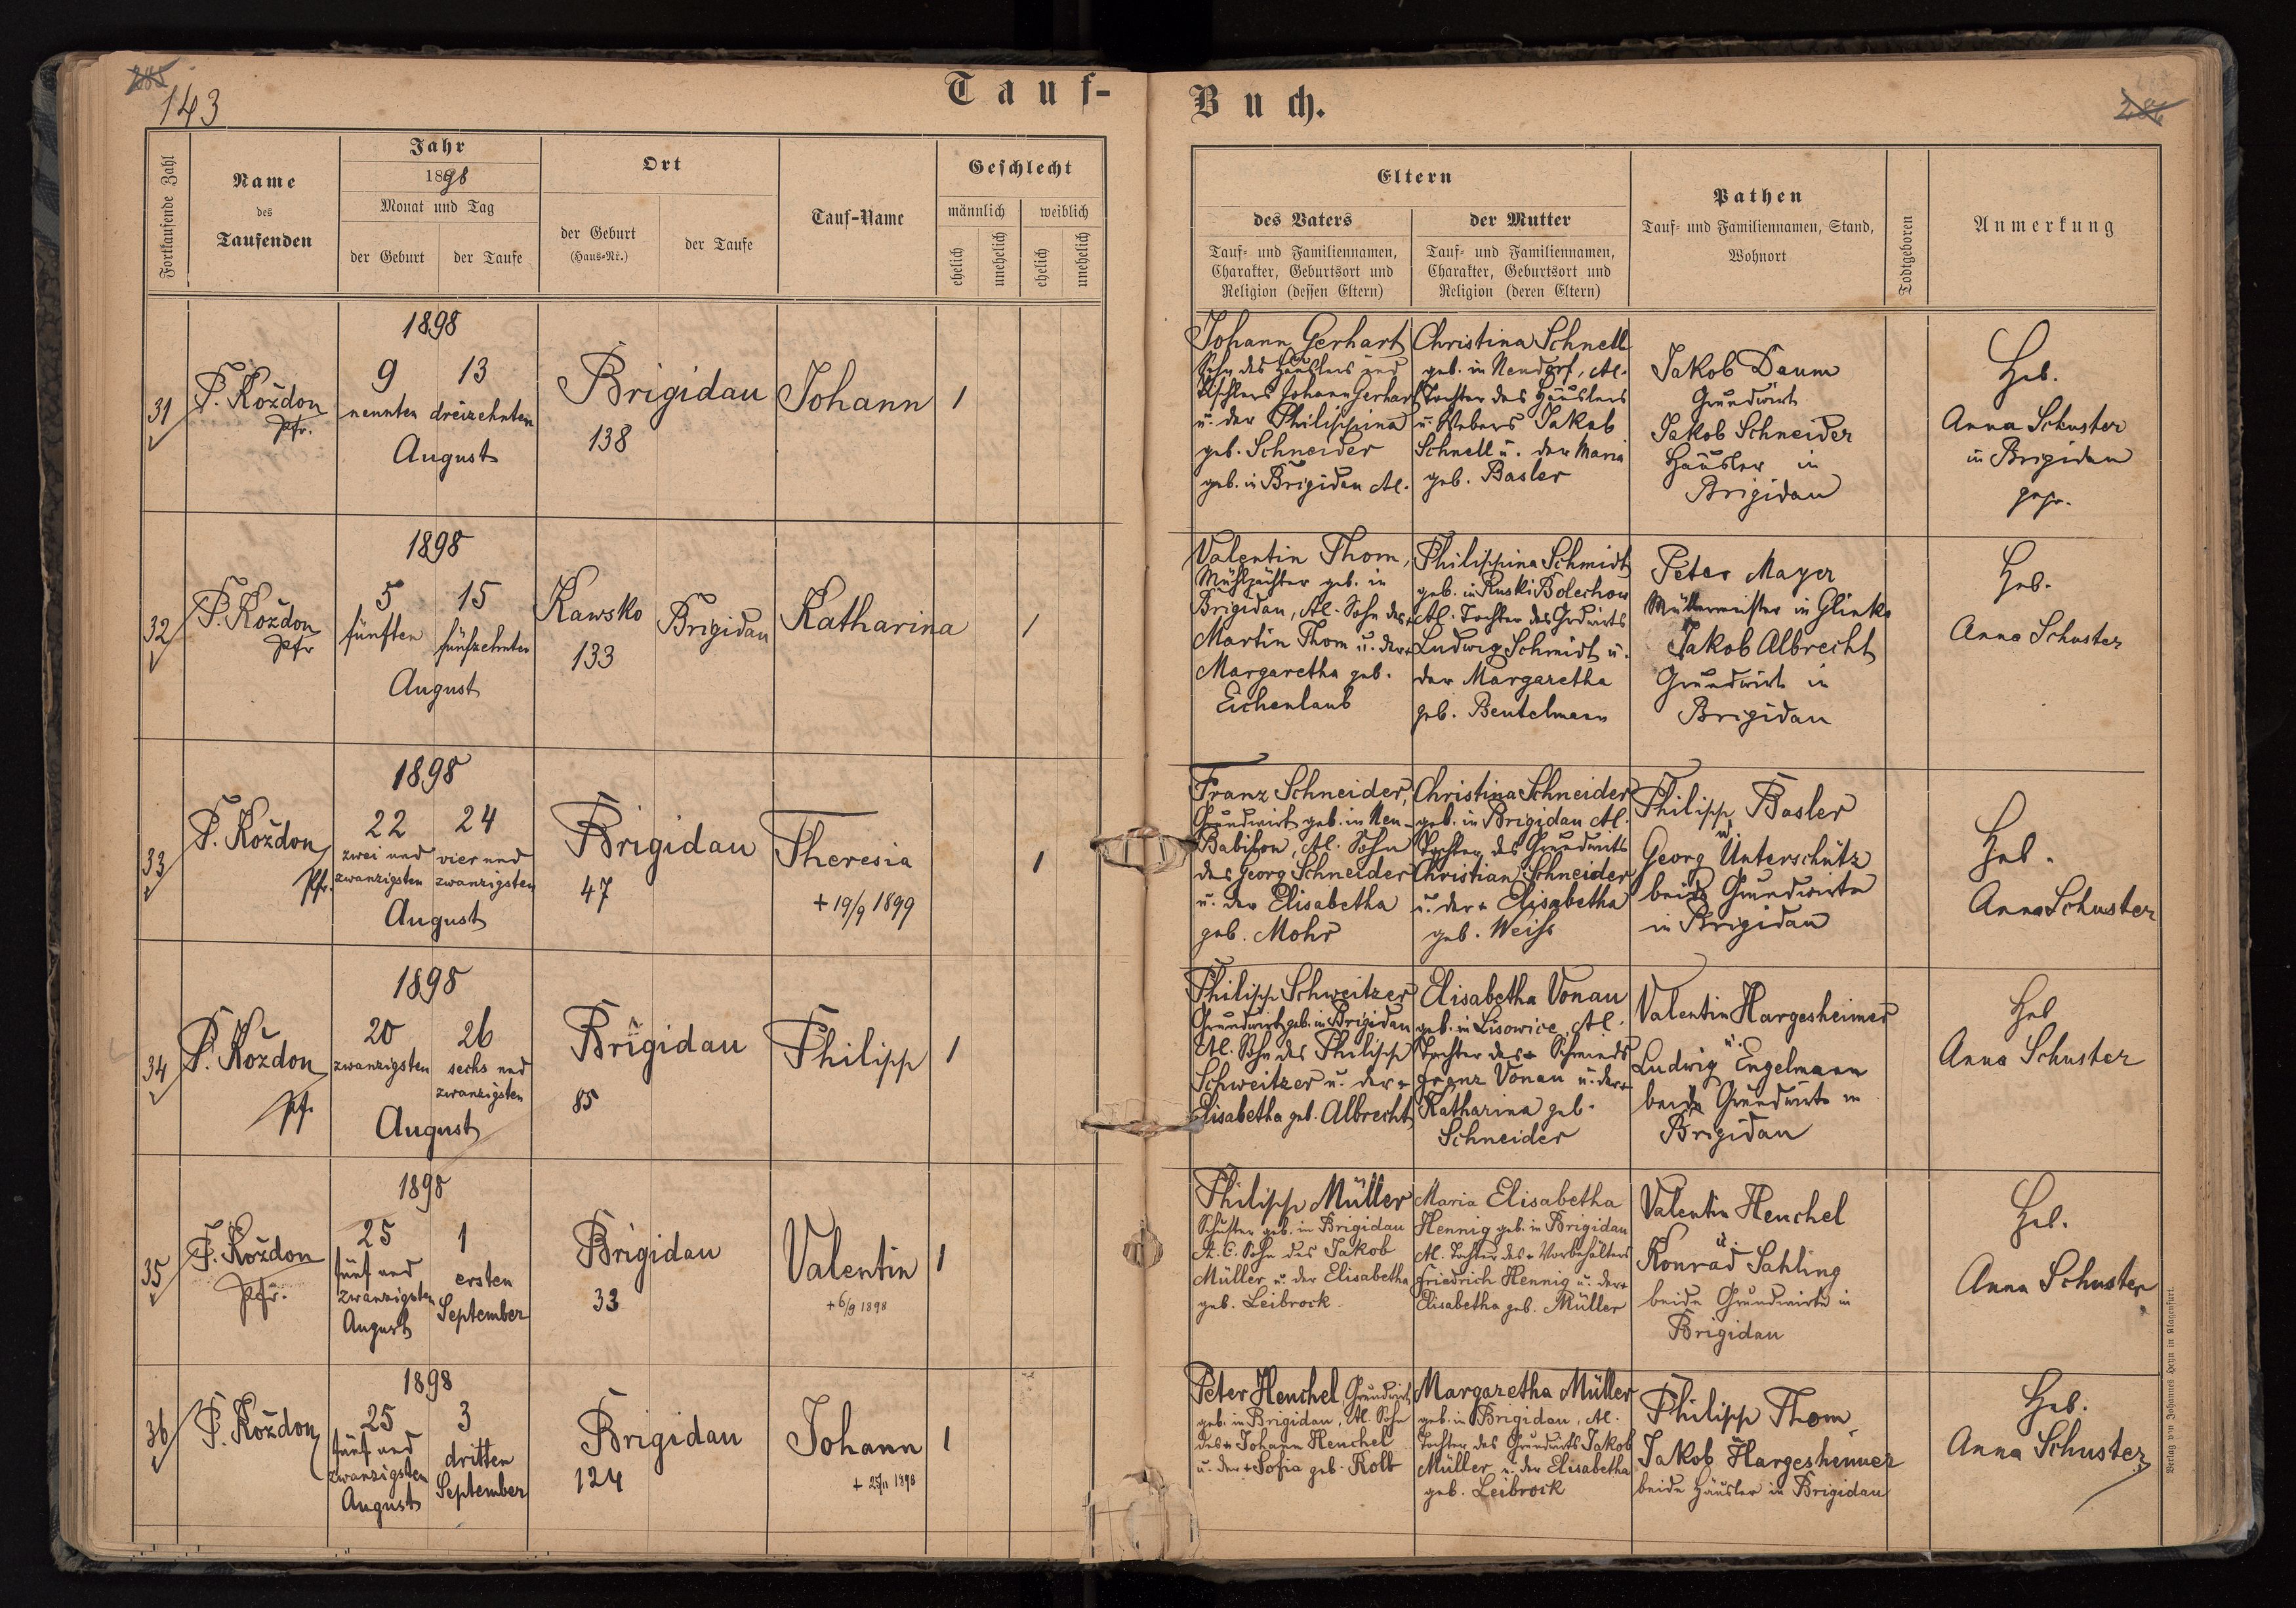 285
143
Tauf-
Buch.
286
Fortlaufende Zahl
Name
des
Taufenden
Jahr
1898
Monat und Tag
der Geburt
der Taufe
Ort
der Geburt
(Haus-Nr.)
der Taufe
Tauf-Name
Geschlecht
männlich
weiblich
ehelich
unehelich
ehelich
unehelich
Eltern
des Vaters
Tauf- und Familiennamen,
Charakter, Geburtsort und
Religion (dessen Eltern)
der Mutter
Tauf- und Familiennamen,
Charakter, Geburtsort und
Religion (deren Eltern)
Pathen
Tauf- und Familiennamen, Stand,
Wohnort
Todtgeboren
Anmerkung
31
P. Koždon
Pfr.
1898
9
13
neunten
dreizehnten
August
Brigidau
138
Johann
1
Johann Gerhart
Sohn des Häuslers und
Tischlers Johann Gerhart
u. der Philippina
geb. Schneider
geb. in Brigidau Al.
Christina Schnell
geb. in Neudorf, Al.
Tochter des Häuslers
u. Webers Jakob
Schnell u. der Maria
geb. Basler
Jakob Daum
Grundwirt
Jakob Schneider
Häusler in
Brigidau
Heb.
Anna Schuster
in Brigidau
gepr.
32
P. Koždon
Pfr
1898
5
15
fünften
fünfzehnten
August
Kawsko
133
Brigidau
Katharina
1
Valentin Thom,
Mühlpächter geb. in
Brigidau, Al. Sohn des +
Martin Thom u. der +
Margaretha geb.
Eichenlaub
Philippina Schmidt
geb. in Ruski Bolechow
Al. Tochter des Grdwirts
Ludwig Schmidt u.
der Margaretha
geb. Beutelmann
Peter Mayer
Müllermeister in Glinko
Jakob Albrecht
Grundwirt in
Brigidau
Heb.
Anna Schuster
33
P. Koždon
Pfr.
1898
22
24
zwei und
zwanzigsten
vier und
zwanzigsten
August
Brigidau
47
Theresia
+ 19/9 1899
1
Franz Schneider,
Grundwirt geb. in Neu-
Babilon, Al. Sohn
des Georg Schneider
u. der Elisabetha
geb. Mohr
Christina Schneider
geb. in Brigidau Al.
Tochter des Grundwirts
Christian Schneider
u. der + Elisabetha
geb. Weiss
Philipp Basler
u.
Georg Unterschütz
beide Grundwirte
in Brigidau
Heb.
Anna Schuster
34
P. Koždon
Pf.
1898
20
26
zwanzigsten
sechs und
zwanzigsten
August
Brigidau
85
Philipp
1
Philipp Schweitzer
Grundwirt geb. in Brigidau
Al. Sohn des Philipp
Schweitzer u. der +
Elisabetha geb. Albrecht
Elisabetha Vonau
geb. in Lisowice, Al.
Tochter des + Schmieds
Franz Vonau u. der +
Katharina geb.
Schneider
Valentin Hargesheimer
u.
Ludwig Engelmann
beide Grundwirte in
Brigidau
Heb
Anna Schuster
35
P. Koždon
Pfr.
1898
25
1
fünf und
zwanzigsten
August
ersten
September
Brigidau
33
Valentin
+ 6/9 1898
1
Philipp Müller
Schuster geb. in Brigidau
A. C. Sohn des Jakob
Müller u. der Elisabetha
geb. Leibrock
Maria Elisabetha
Hennig geb. in Brigidau
Al. Tochter des + Vorbehälters
Friedrich Hennig u. der +
Elisabetha geb. Müller
Valentin Henchel
u.
Konrad Sahling
beide Grundwirte in
Brigidau
Heb.
Anna Schuster
36
P. Koždon
1898
25
3
fünf und
zwanzigsten
August
dritten
September
Brigidau
124
Johann
+ 25/11 1898
1
Peter Henchel Grundwirt
geb. in Brigidau, Al. Sohn
des + Johann Henchel
u. der + Sofia geb. Kolb
Margaretha Müller
geb. in Brigidau, Al.
Tochter des Grundwirts Jakob
Müller u. der Elisabetha
geb. Leibrock
Philipp Thom
Jakob Hargesheimer
beide Häusler in Brigidau
Heb.
Anna Schuster
Verlag von Johannes Heyn in Klagenfurt.